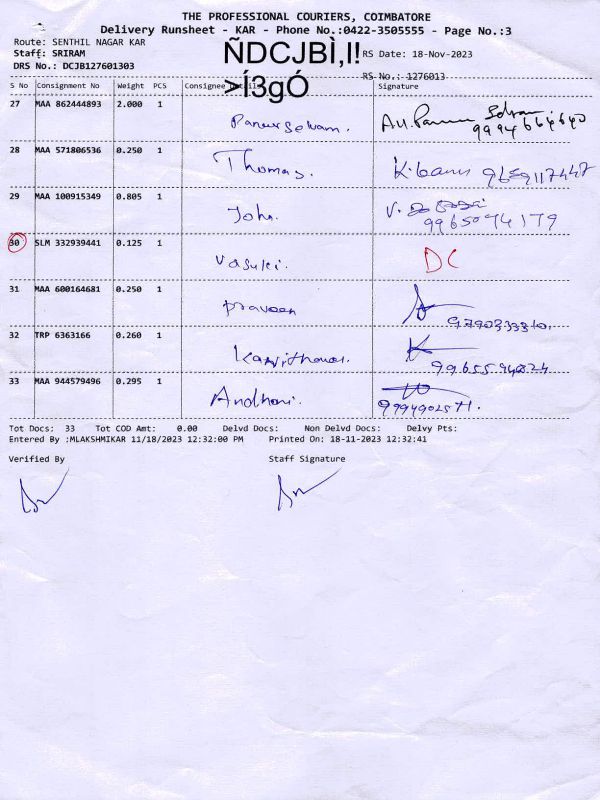 THE PROFESSIONAL COURIERS, COIMBATORE
Delivery Runsheet - KAR - Phone No.:0422-3505555 - Page No.:3
Route: SENTHIL NAGAR KAR
Staff: SRIRAM
DRS No.: DCJB127601303
ÑDCJBÌ,I!
>Í3gÓ
RS Date: 18-Nov-2023
RS No.: 1276013
S No Consignment No Weight PCS Consignee Details Signature
27 MAA 862444893 2.000 1
9994664640
28 MAA 571806536 0.250 1 Thomas. 9659117447
29 MAA 100915349 0.805 1 John. V.
9965074179
30 SLM 332939441 0.125 1 Vasuki. DC
31 MAA 600164681 0.250 1 praveen
9790333310.
32 TRP 6363166 0.260 1
33 MAA 944579496 0.295 1
Tot Docs: 33 Tot COD Amt: 0.00 Delvd Docs: Non Delvd Docs: Delvy Pts:
Entered By :MLAKSHMIKAR 11/18/2023 12:32:00 PM Printed On: 18-11-2023 12:32:41
Verified By Staff Signature